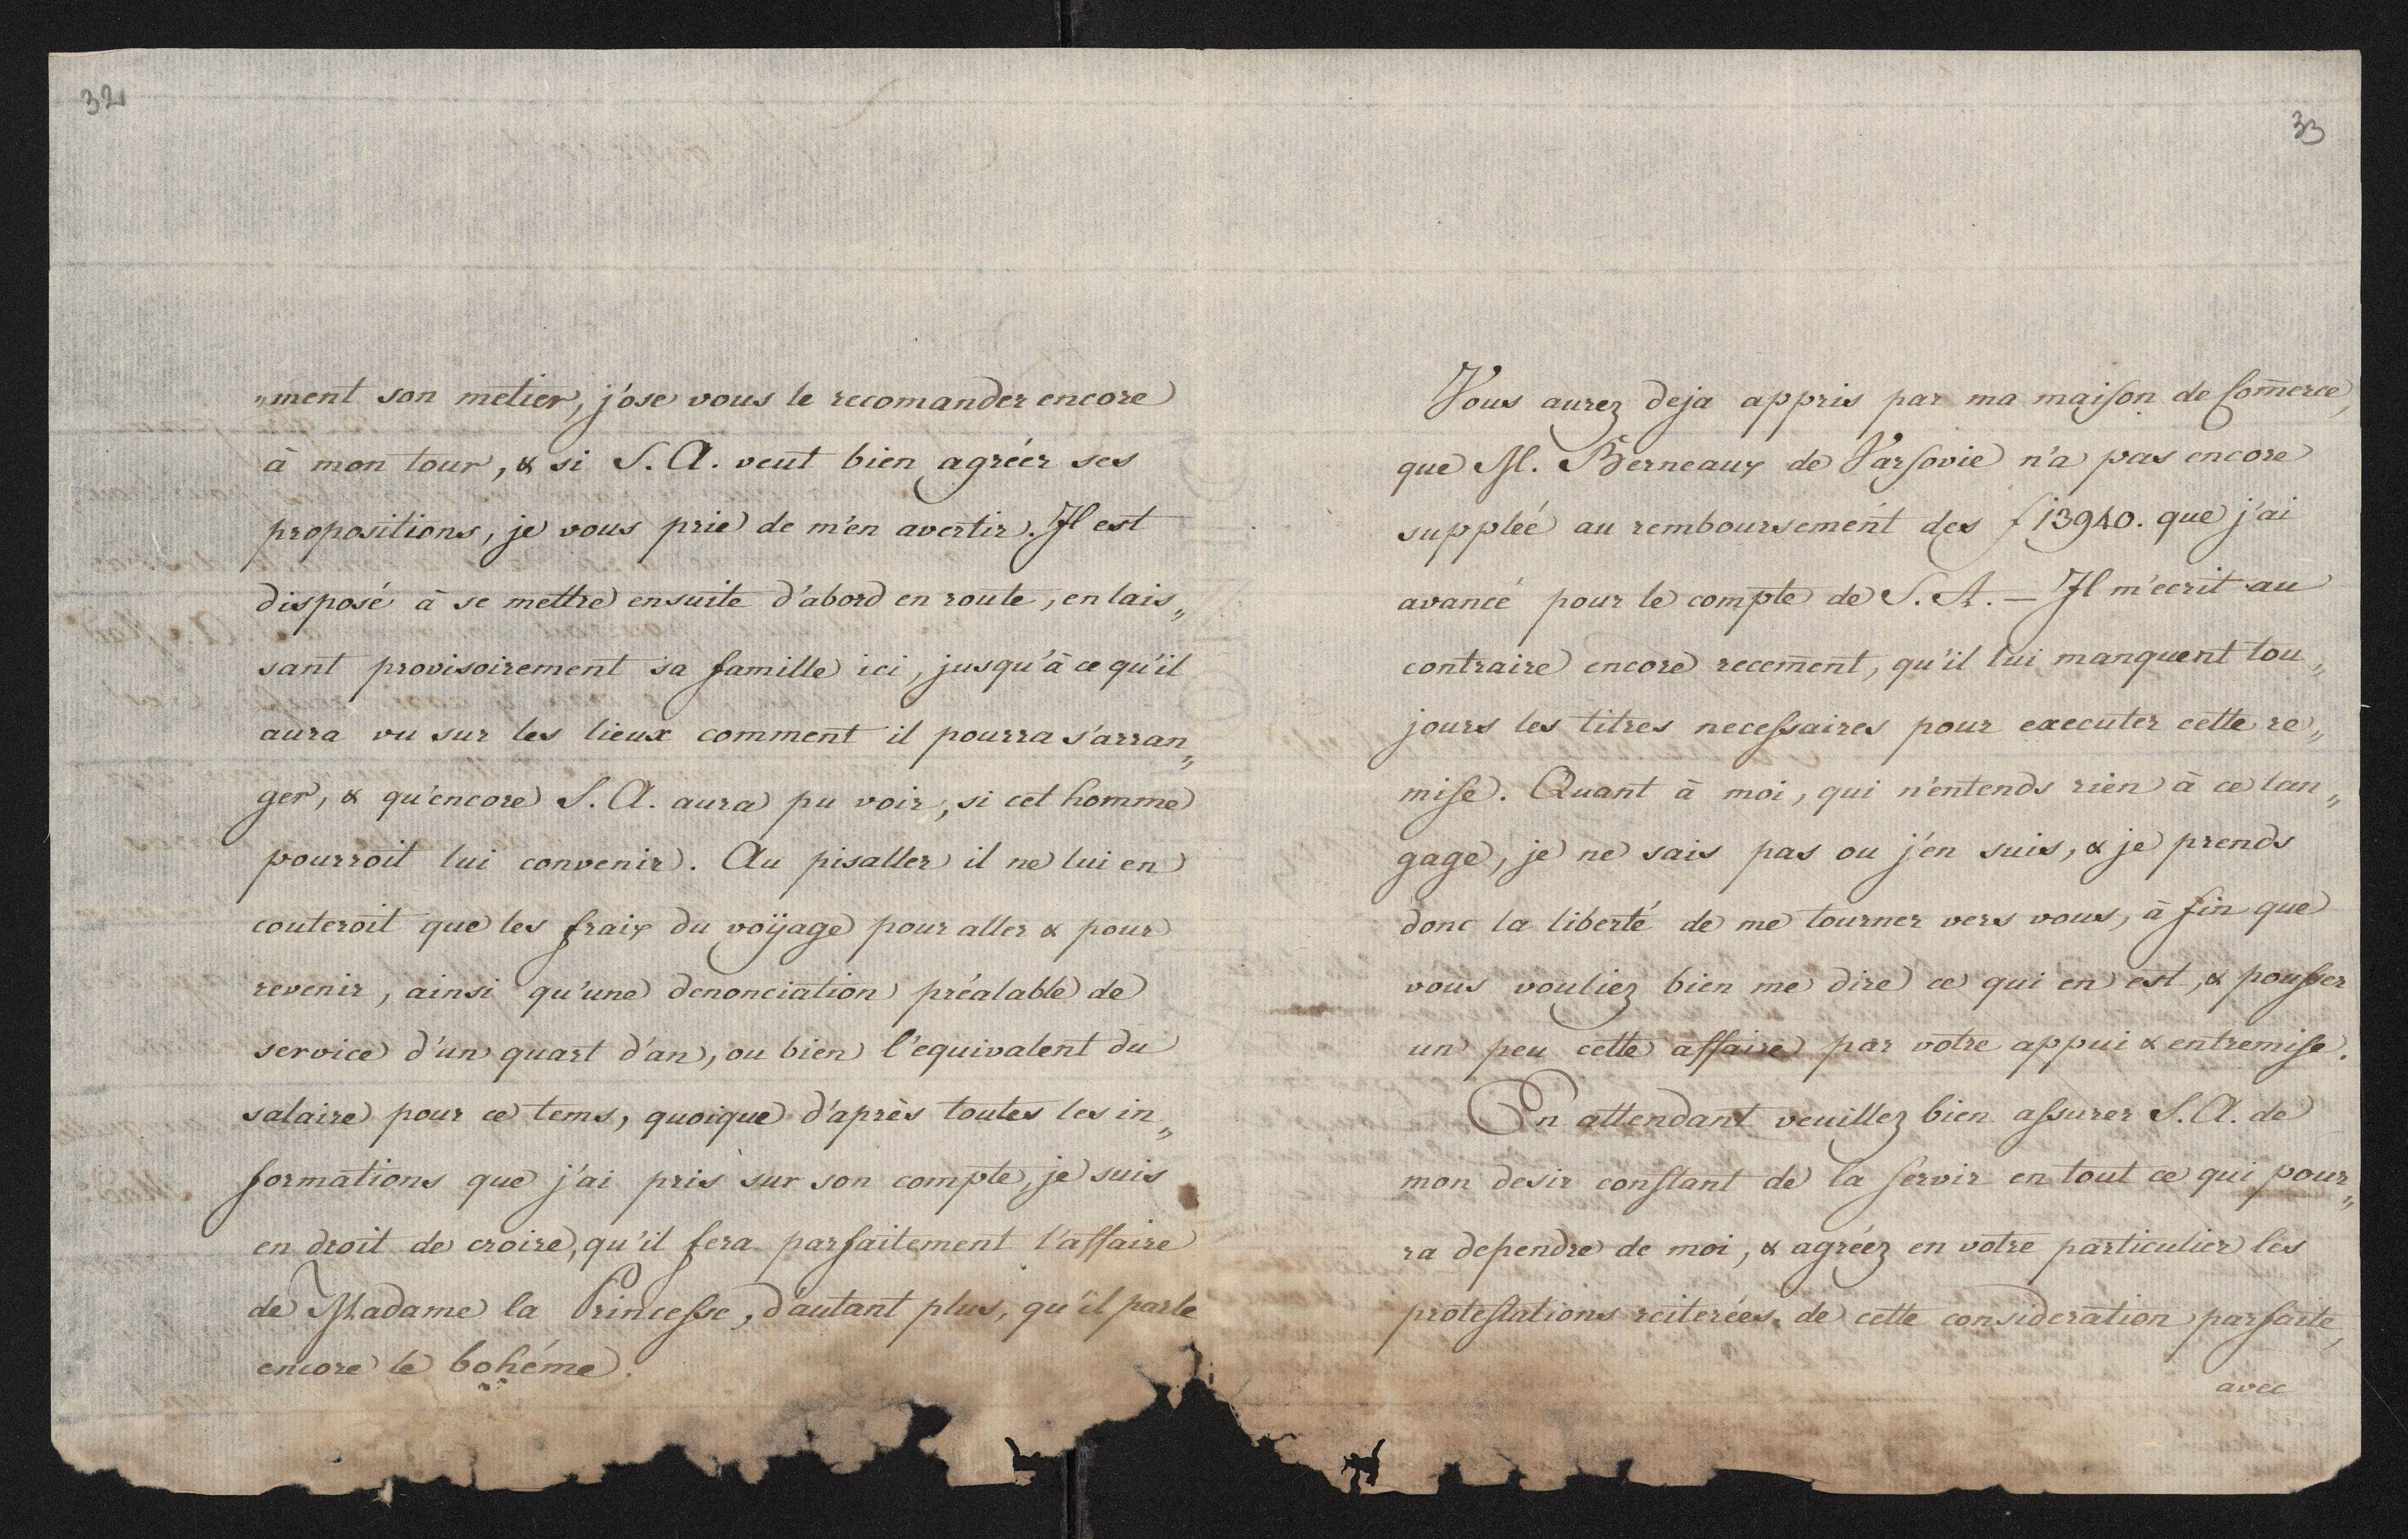 32
„ment son metier, j'ose vous le recomander encore
à mon tour, & si S. A. veut bien agréer ses
propositions, je vous prie de m'en avertir. Il est
disposé à se mettre ensuite d'abord en route, en lais„
sant provisoirement sa famille ici, jusqu'à ce qu'il
aura vu sur les lieux comment il pourra s'arran„
ger, & qu'encore S. A. aura pu voir, si cet homme
pourroit lui convenir. Au pisaller il ne lui en
couteroit que les fraix du voÿage pour aller & pour
revenir, ainsi qu'une denonciation préalable de
service d'un quart d'an, ou bien l'equivalent du
salaire pour ce tems, quoique d'après toutes les in„
formations que j'ai pris sur son compte, je suis
en droit de croire, qu'il fera parfaitement l'affaire
de Madame la Princeſse, d'autant plus, qu'il parle
encore le bohéme.
33
Vous aurez deja appris par ma maiſon de Com̄erce,
que M. Berneaux de Varſovie n'a pas encore
suppléé au remboursement des f 13940. que j'ai
avancé pour le compte de S. A. — Il m'ecrit au
contraire encore recem̄ent, qu'il lui manquent tou„
jours les titres neceſsaires pour executer cette re„
miſe. Quant à moi, qui n'entends rien à ce lan„
gage, je ne sais pas ou j'en suis, & je prends
donc la liberté de me tourner vers vous, à fin que
vous vouliez bien me dire ce qui en est, & pouſser
un peu cette affaire par votre appui & entremiſe.
En attendant veuillez bien aſsurer S. A. de
mon desir conſtant de la ſervir en tout ce qui pour„
ra dependre de moi, & agréez en votre particulier les
proteſtations reiterées de cette consideration parfaite,
avec